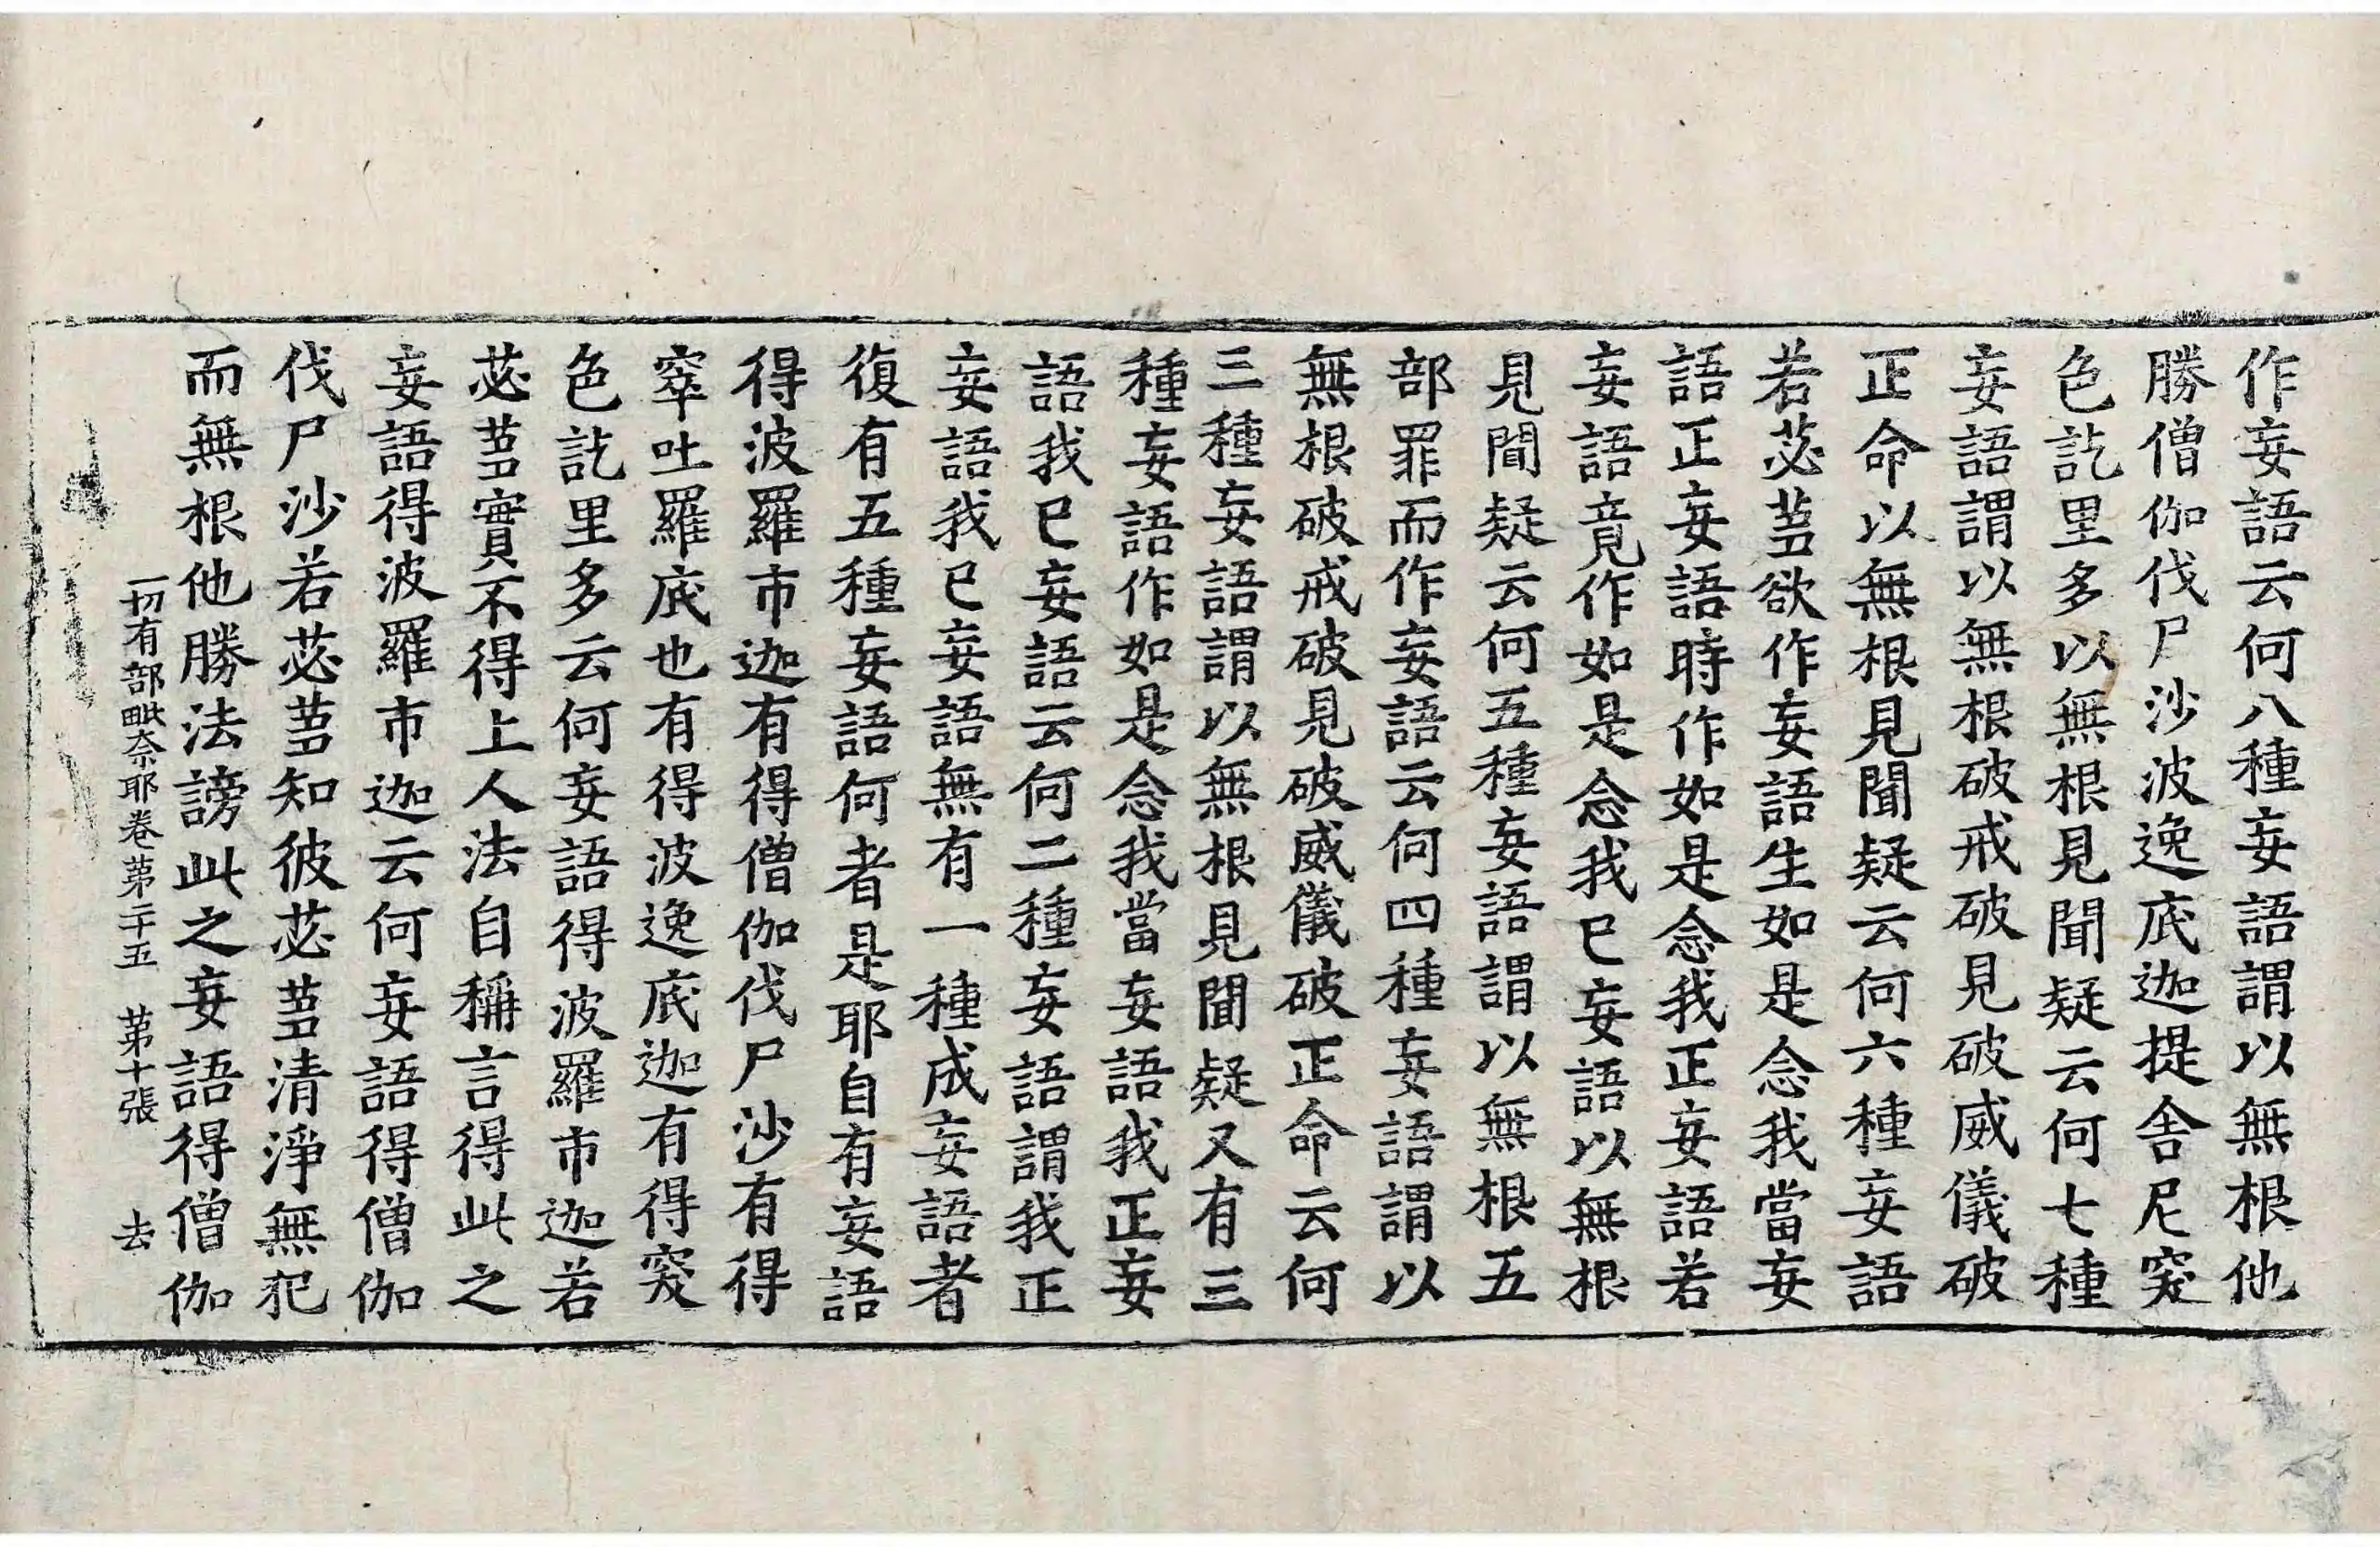 作妄語云何八種妄語謂以無根他
勝僧伽伐尸沙波逸底迦提舍尼突
色訖里多以無根見聞疑云何七種
妄語謂以無根破戒破見破威儀破
正命以無根見聞疑云何六種妄語
若苾蒭欲作妄語生如是念我當妄
語正妄語時作如是念我正妄語若
妄語竟作如是念我已妄語以無根
見聞疑云何五種妄語謂以無根五
部罪而作妄語云何四種妄語謂以
無根破戒破見破威儀破正命云何
三種妄語謂以無根見聞疑又有三
種妄語作如是念我當妄語我正妄
語我已妄語云何二種妄語謂我正
妄語我已妄語無有一種成妄語者
復有五種妄語何者是耶自有妄語
得波羅市迦有得僧伽伐尸沙有得
窣吐羅底也有得波逸底迦有得突
色訖里多云何妄語得波羅市迦若
苾蒭實不得上人法自稱言得此之
妄語得波羅市迦云何妄語得僧伽
伐尸沙若苾蒭知彼苾蒭清淨無犯
而無根他勝法謗此之妄語得僧伽
一切有部毗奈耶卷第二十五 第十張 去